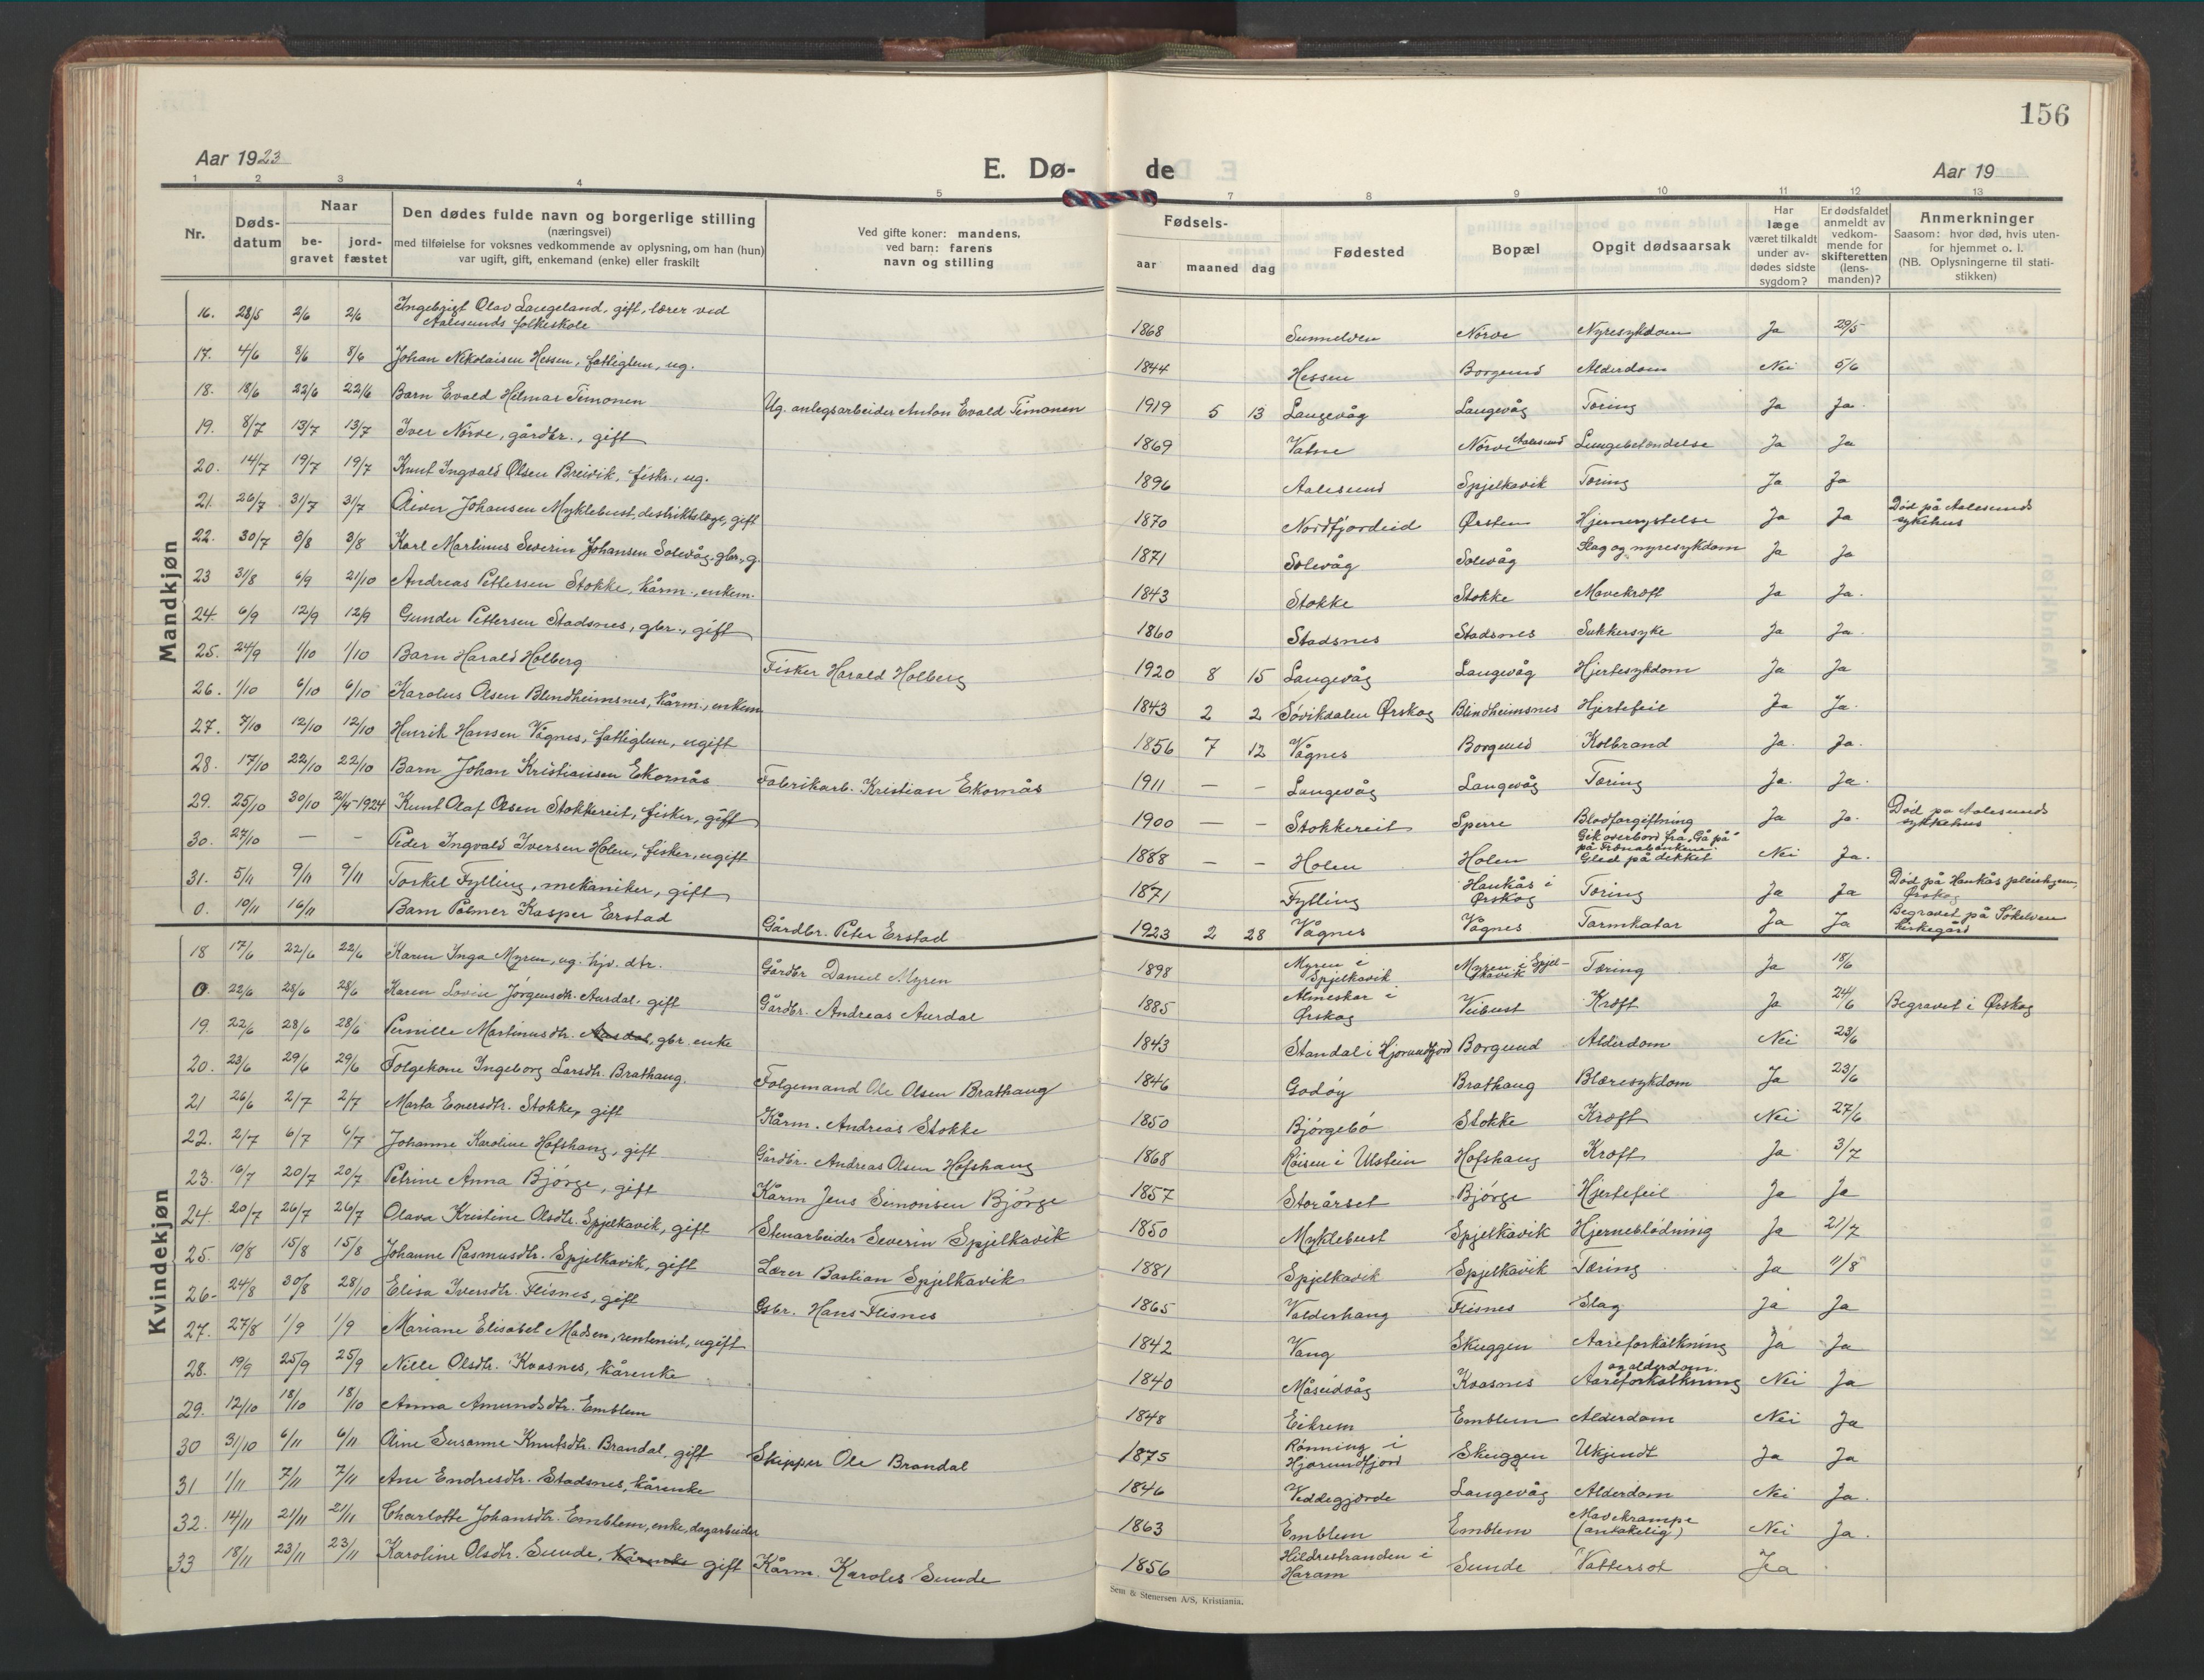 156
Aar 1923
E. Dø- de
Aar 19
1 2 3 4 5 7 8 9 10 11 12 13
Nr. Døds-datum Naar be-gravet jord-fæstet Den dødes fulde navn og borgerlige stilling (næringsvei) med tilføielse for voksnes vedkommende av oplysning, om han (hun) var ugift, gift, enkemand (enke) eller fraskilt Ved gifte koner: mandens, ved barn: farens navn og stilling Fødsels- aar maaned dag Fødested Bopæl Opgit dødsaarsak Har læge været tilkaldt under av-dødes sidste sygdom? Er dødsfaldet anmeldt av vedkom-mende for skifteretten (lens-manden)? Anmerkninger Saasom: hvor død, hvis uten-for hjemmet o. l. (NB. Oplysningerne til stati-stikken)
Mandkjøn
16. 28/5 2/6 2/6 Ingebrigt Olav Langeland, gift, lærer ved Aalesunds folkeskole 1868 Sunnelven Nørve Nyresykdom Ja 29/5
17. 4/6 8/6 8/6 Johan Nikolaisen Hessen, fattiglem, ug. 1844 Hessen Borgund Alderdom Nei 5/6
18. 18/6 22/6 22/6 Barn Evald Helmar Timonen Ug. anlegsarbeider Anton Evald Timonen 1919 5 13 Langevåg Langevåg Tæring Ja Ja.
19. 8/7 13/7 13/7 Iver Nørve, gårdbr., gift 1869 Vatne Nørve Aalesund Lungebetændelse Ja Ja
20. 14/7 19/7 19/7 Knut Ingvald Olsen Breivik, fisker, ug. 1896 Aalesund Spjelkavik Tæring Ja Ja
21. 26/7 31/7 31/7 Eiver Johansen Myklebust, destriktslæge, gift 1870 Nordfjordeid Ørsten Hjernerystelse Ja Ja Død på Aalesunds sykehus
22. 30/7 3/8 3/8 Karl Martinus Severin Johansen Solevåg, gbr., g. 1871 Solevåg Solevåg Slag og nyresykdom Ja Ja
23 31/8 6/9 21/10 Andreas Pettersen Stokke, kårm., enkem. 1843 Stokke Stokke Mavekræft Ja Ja.
24. 6/9 12/9 12/9 Gunder Pettersen Stadsnes, gbr., gift 1860 Stadsnes Stadsnes Sukkersyke Ja Ja.
25. 24/9 1/10 1/10 Barn Harald Holberg Fisker Harald Holberg 1920 8 15 Langevåg Langevåg Hjertesykdom Ja Ja
26. 1/10 6/10 6/10 Karolus Olsen Blindheimsnes, kårm., enkem 1843 2 2 Søvikdalen Ørskog Blindheimsnes Hjertefeil Ja Ja.
27. 7/10 12/10 12/10 Henrik Hansen Vågnes, fattiglem, ugift 1856 7 12 Vågnes Borgund Kolbrand Ja. Ja.
28. 17/10 22/10 22/10 Barn Johan Kristiansen Ekornås Fabrikarb. Kristian Ekornås 1911 — — Langevåg Langevåg Tæring Ja. Ja.
29. 25/10 30/10 21/4-1924 Knut Olaf Olsen Stokkereit, fisker, gift 1900 — — Stokkereit Sperre Blodforgiftning Ja Ja. Død på Aalesunds sykkehus
30. 27/10 — — Peder Ingvald Iversen Holen, fisker, ugift 1888 — — Holen Holen Gik overbord fra "Gå på" på Trænabanken. Gled på dekket Nei Ja.
31. 5/11 9/11 9/11 Torkel Fylling, mekaniker, gift 1871 Fylling Haukås i Ørskog Tæring Ja Ja Død på Haukås pleiehjem, Ørskog
0. 10/11 16/11 Barn Palmer Kasper Erstad Gårdbr. Peter Erstad 1923 2 28 Vågnes Vågnes Tarmkatar Ja Ja Begravet på Sökelven kirkegård
Kvindekjøn
18 17/6 22/6 22/6 Karen Inga Myren, ug. hjv. dtr. Gårdbr Daniel Myren 1898 Myren i Spjelkavik Myren i Spjel-kavik Tæring Ja 18/6
0. 22/6 28/6 28/6 Karen Lovise Jørgensdtr. Aurdal, gift Gårdbr. Andreas Aurdal 1885 Almeskar i Ørskog Veibust Kræft Ja 24/6 Begravet i Ørskog
19. 22/6 28/6 28/6 Pernille Martinusdtr. gbr. enke 1843 Standal i Hjørundfjord Borgund Alderdom Nei 23/6
20. 23/6 29/6 29/6 Folgekone Ingeborg Larsdtr. Brathaug. Folgemand Ole Olsen Brathaug 1846 Godøy Brathaug Blæresykdom Ja 23/6
21 26/6 2/7 2/7 Marta Enersdtr. Stokke, gift Kårm. Andreas Stokke 1850 Bjørgebø Stokke Kræft Nei 27/6
22. 2/7 6/7 6/7 Johanne Karoline Hofshaug, gift Gårdbr. Andreas Olsen Hofshaug 1868 Røisen i Ulstein Hofshaug Kræft Ja. 3/7
23. 16/7 20/7 20/7 Petrine Anna Bjørge, gift Kårm Jens Simonsen Bjørge 1857 Storårset Bjørge Hjertefeil Ja Ja
24. 20/7 26/7 26/7 Olava Kristine Olsdtr. Spjelkavik, gift Stenarbeider Severin Spjelkavik 1850 Myklebust Spjelkavik Hjerneblødning Ja 21/7
25. 10/8 15/8 15/8 Johanne Rasmusdtr. Spjelkavik, gift Lærer Bastian Spjelkavik 1881 Spjelkavik Spjelkavik Tæring Ja 11/8
26- 24/8 30/8 28/10 Elisa Iversdtr. Flisnes, gift Gbr. Hans Flisnes 1865 Valderhaug Flisnes Slag Ja Ja
27. 27/8 1/9 1/9 Mariane Elisabet Madsen, rentenist, ugift 1842 Vang Skuggen Aareforkalkning Ja Ja
28. 19/9 25/9 25/9 Nille Olsdtr. Kvasnes, kårenke 1840 Måseidvåg Kvasnes Aareforkalkning og alderdom. Nei Ja
29. 12/10 18/10 18/10 Anna Amundsdtr. Emblem 1848 Eikrem Emblem Alderdom Nei Ja
30 31/10 6/11 6/11 Susanne Knutsdtr. Brandal, gift Skipper Ole Brandal 1875 Rønning i Hjørundfjord Skuggen Ukjendt Ja Ja
31 1/11 7/11 7/11 Ane Endresdtr. Stadsnes, kårenke 1846 Veddegjerde Langevåg Alderdom Nei Ja.
32. 14/11 21/11 21/11 Charlotte Johansdtr. Emblem, enke, dagarbeider 1863 Emblem Emblem Mavekrampe (antakelig) Nei Ja.
33 18/11 23/11 23/11 Karoline Olsdtr. Sunde, kårenke gift Kårm. Karoles Sunde 1856 Hildrestranden i Haram Sunde Vattersot Ja
Sem & Stenersen A/S, Kristiania.